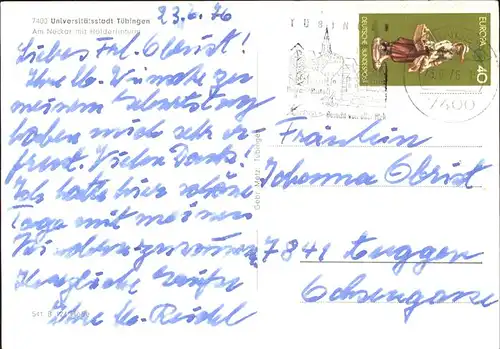 7400 Universitätsstadt Tübingen
Am Neckar mit Hölderlinturm
23.6.76
Liebes Frl. Obrist!
Ihre lb. Wünsche zu
meinem Geburtstag
haben mich sehr er-
freut. Vielen Dank!
Ich hatte hier schöne
Tage mit meinen
Kindern zusammen
Herzliche Grüße
Ihre M. Reidel
Gebr. Metz, Tübingen
TÜBIN
7400
EUROPA
DEUTSCHE BUNDESPOST
40
Fräulein
Johanna Obrist
7841 Auggen
Ochsengasse